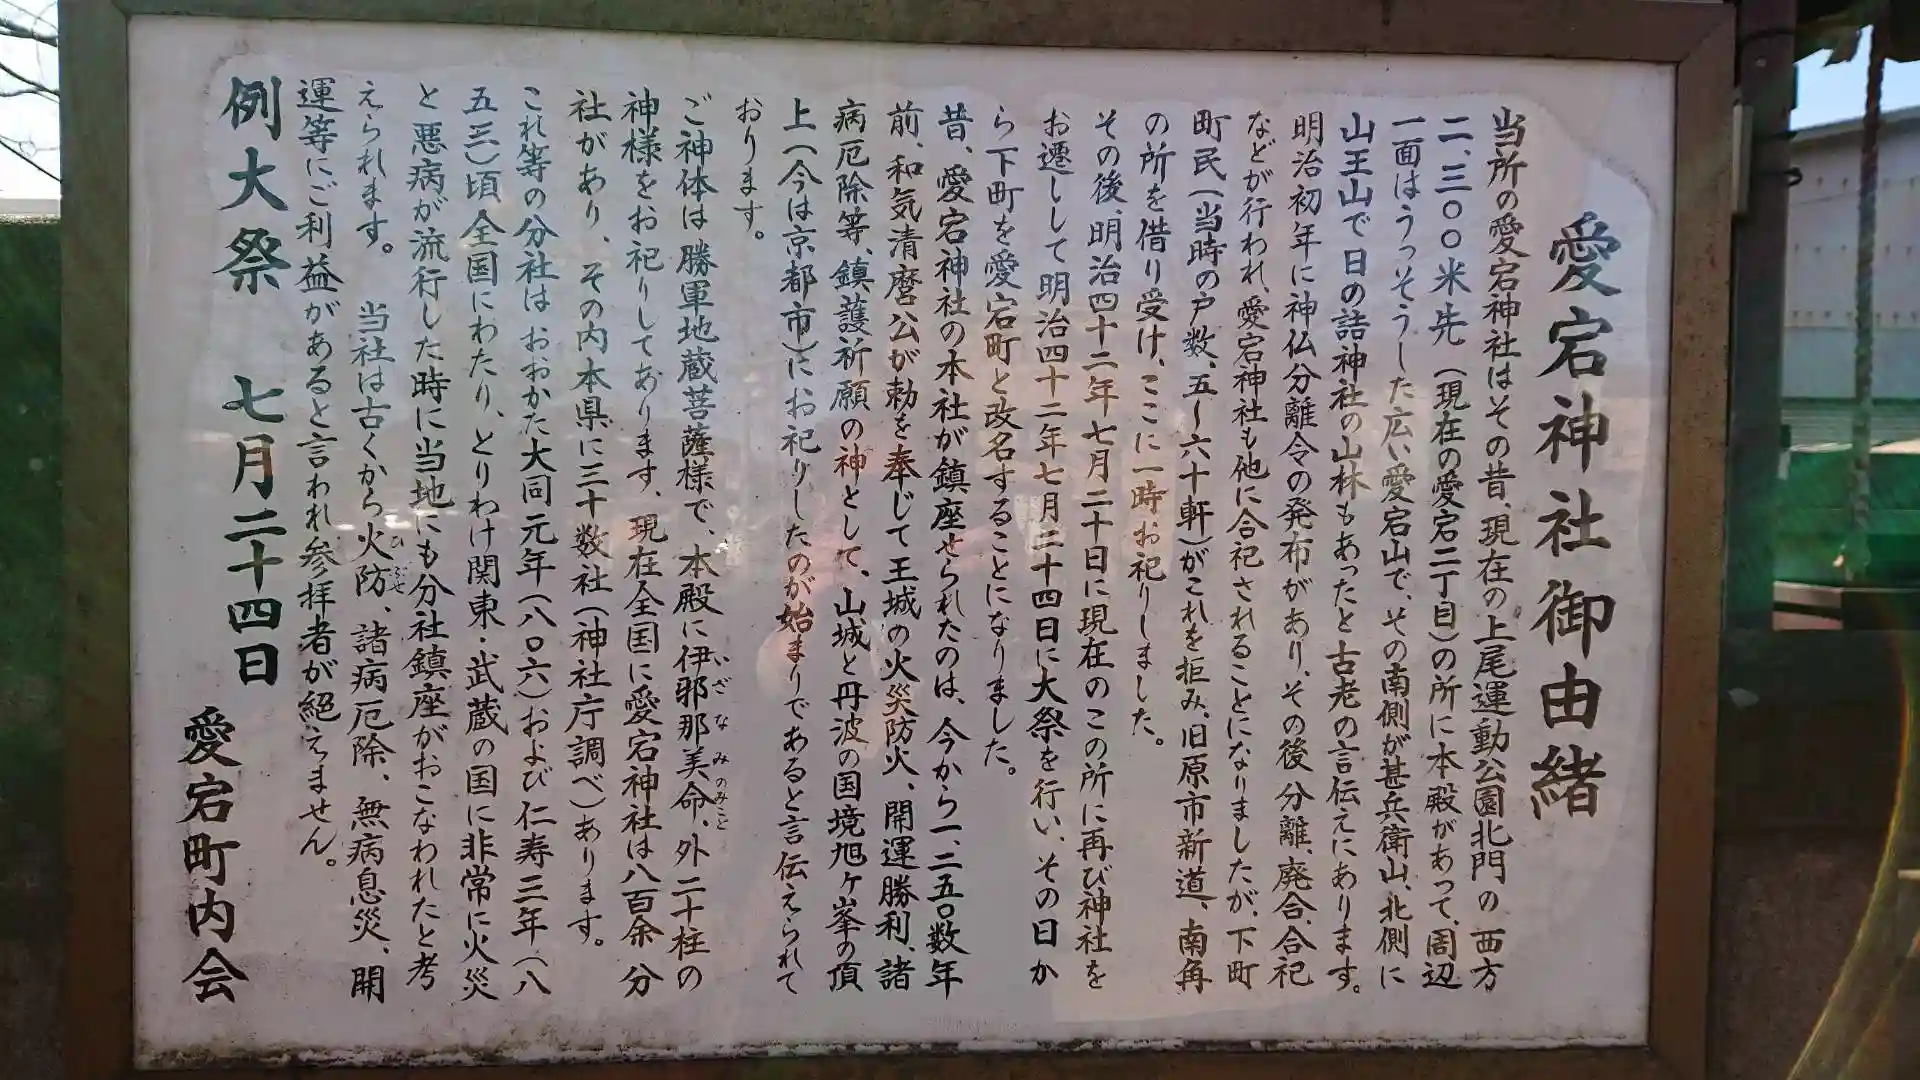 愛宕神社御由緒
当所の愛宕神社はその昔、現在の上尾運動公園北門の西方
二、三〇〇米先(現在の愛宕二丁目)の所に本殿があって、周辺
一面はうっそうした広い愛宕山で、その南側が甚兵衛山、北側に
山王山で日の詰神社の山林もあったと古老の言伝えにあります。
明治初年に神仏分離令の発布があり、その後分離、廃合、合祀
などが行われ、愛宕神社も他に合祀されることになりましたが、下町
町民(当時の戸数、五〜六十軒)がこれを拒み、旧原市新道、南角
の所を借り受け、ここに一時お祀りしました。
その後、明治四十二年七月二十日に現在のこの所に再び神社を
お遷しして明治四十二年七月二十四日に大祭を行い、その日か
ら下町を愛宕町と改名することになりました。
昔、愛宕神社の本社が鎮座せられたのは、今から一、二五〇数年
前、和気清麿公が勅を奉じて王城の火災防火、開運勝利、諸
病厄除等、鎮護祈願の神として、山城と丹波の国境旭ヶ峯の頂
上(今は京都市)にお祀りしたのが始まりであると言伝えられて
おります。
ご神体は勝軍地蔵菩薩様で、本殿に伊邪那美命、外二十柱の
いざなみのみこと
神様をお祀りしてあります。現在全国に愛宕神社は八百余分
社があり、その内本県に三十数社(神社庁調べ)あります。
これ等の分社はおおかた大同元年(八〇六)および仁寿三年(八
五三)頃全国にわたり、とりわけ関東・武蔵の国に非常に火災
と悪病が流行した時に当地にも分社鎮座がおこなわれたと考
えられます。 当社は古くから火防、諸病厄除、無病息災、開
ひぶせ
運等にご利益があると言われ参拝者が絶えません。
例大祭 七月二十四日
愛宕町内会